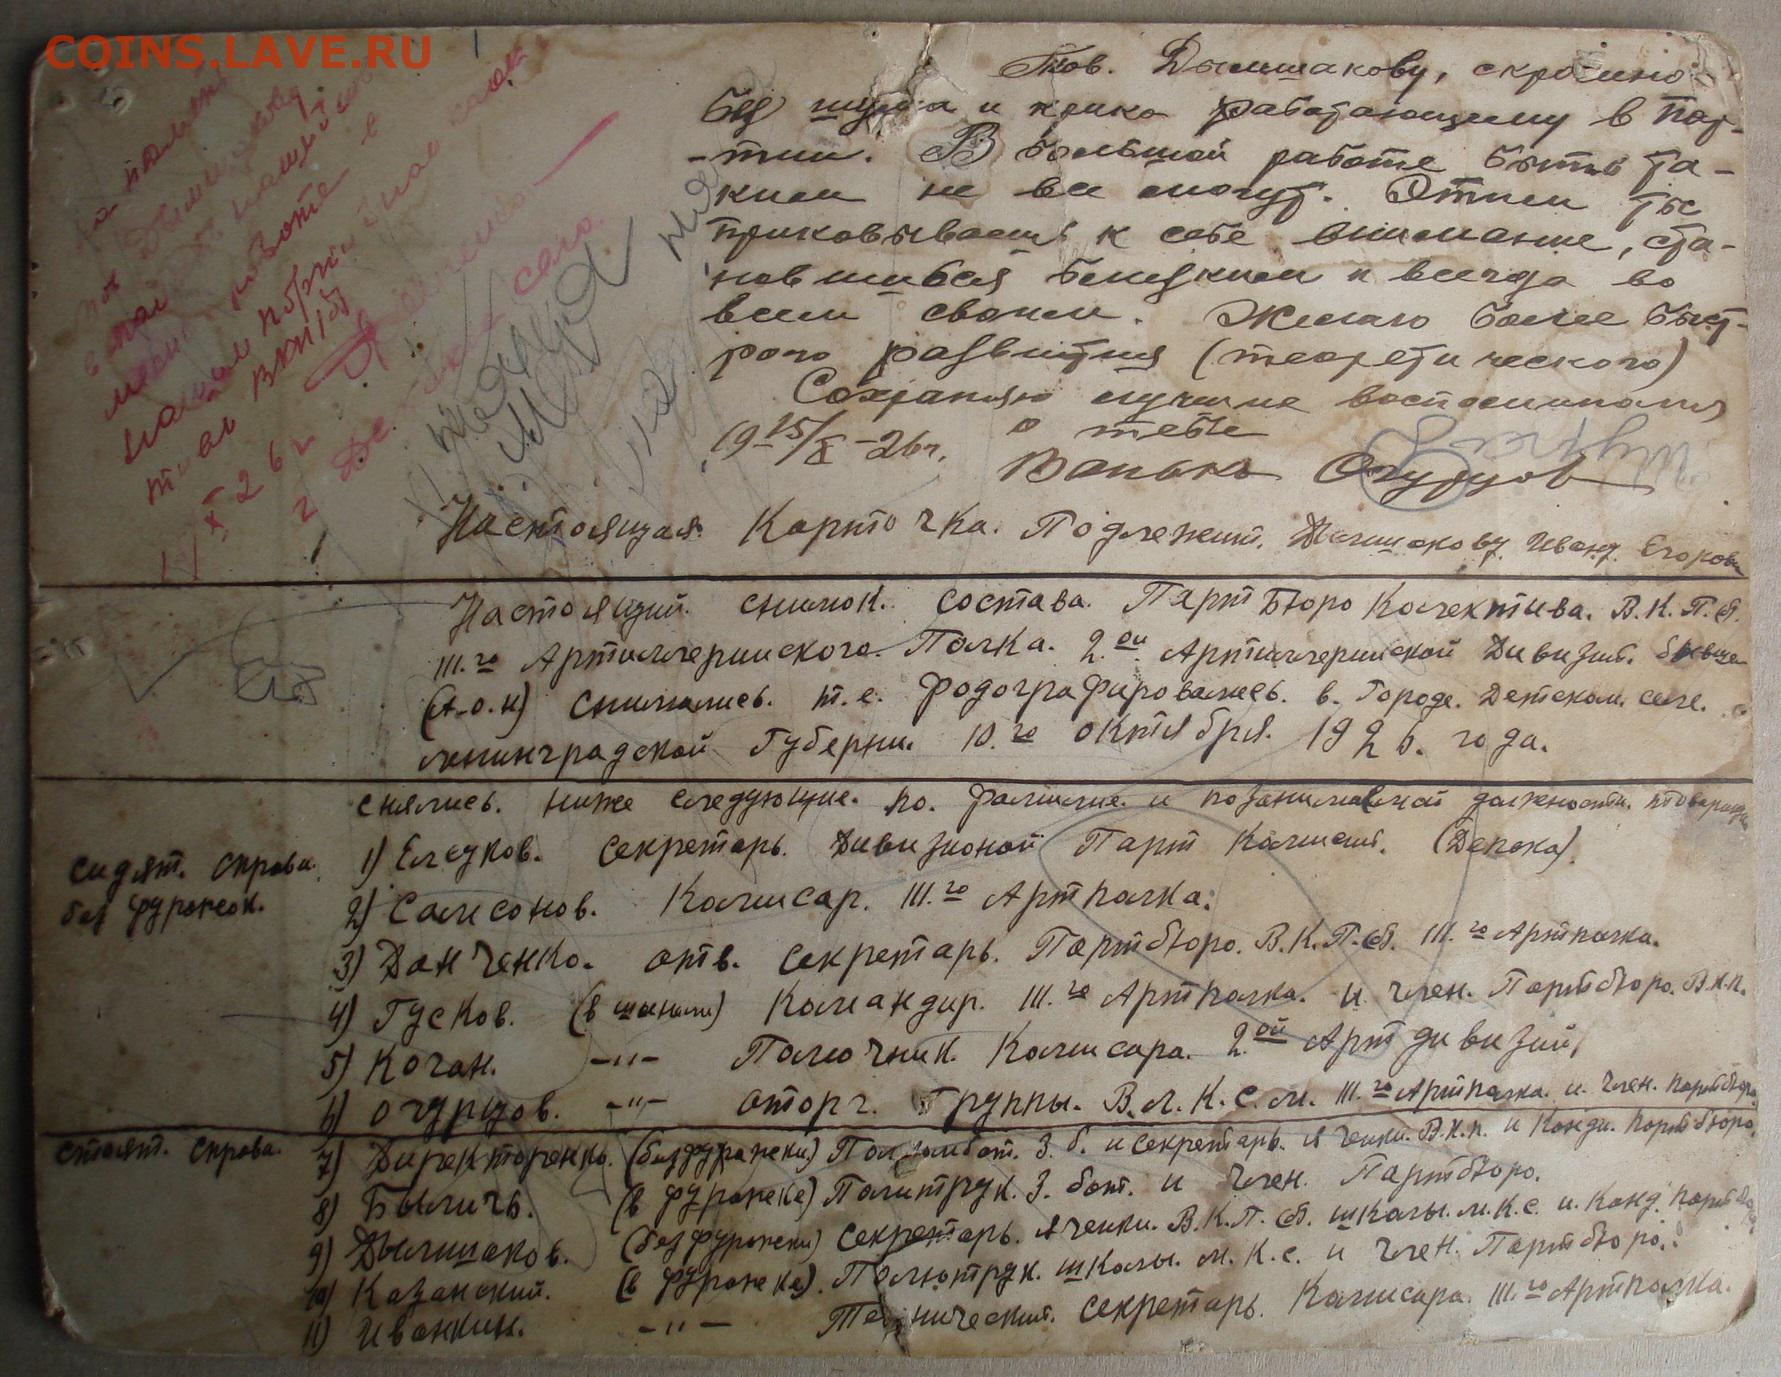 COINS.LAVE.RU
на память
Дымшакову
работе в
ВКП(б)
Х 26 г
Детское село.
Тов. Дымшакову, скромно
без шума и крика работающему в пар-
-тии. В большой работе быть та-
ким не все могут. Этим ты
приковываешь к себе внимание, ста-
новишься близким и всегда во
всем своим. Желаю более быст-
рого развития (теоретического)
Сохраняю лучшие воспоминания
о тебе
19 15/X – 26 г.
Ванька Огурцов
Настоящая Карточка. Подлежит. Дымшакову Ивану Егорови
Настоящий. снимок. состава. ПартБюро Колектива. В.К.П.б.
III.го Артиллерийского. Полка. 2.ой Артиллерийской Дивизии. бывше
(А.О.Н) снимались. т.е. фодографировались. в. Городе. Детском. селе.
ленинградской Губерни. 10.го октября. 1926. года.
снялись. ниже следующие. по. фамилие. и позанимаемой должности. товарищи
сидят. справа.
без фуражок.
1) Елсуков. секретарь. Дивизионой Парт Комисии. (Дапока).
2) Самсонов. Комисар. III.го Артполка.
3) Данченко. отв. секретарь. Партбюро. В.К.П.б. III.го Артполка.
4) Гусков. (в шинели) Командир. III.го Артполка. и член. Партбюро. В.К.П.
5) Кочан. –"– Помочник. Комисара. 2.ой Арт дивизий,
6) Огурцов. –"– оторг. Группы. В.Л.К.С.М. III.го Артполка. и. член. партбюро.
стоят. справа.
7) Директоренко. (без фуражки) 3. б. и секретарь. ячейки. В.К.П. и Канди. партбюро.
8) Быличь. (в фуражке) Политрук. 3. бат. и член. Партбюро.
9) Дымшаков. (без фуражки) секретарь. ячейки. В.К.П.б. школы. М.К.С. и. Канд. партбю
10) Казанский. (в фуражке). школы. М.К.С. и член. Партбюро.
11) Иванкин. –"– Технический. секретарь. Комисара. III.го Артполка.